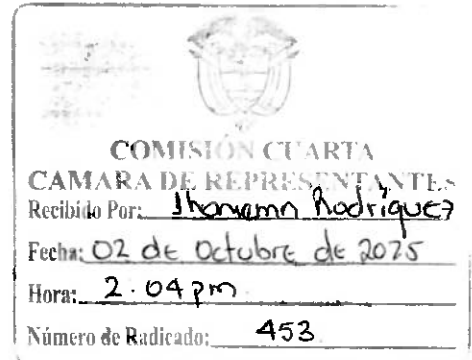 COMISIÓN CUARTA
CAMARA DE REPRESENTANTES
Recibido Por: Rodriguez
Fecha: 02 de Octubre de 2025
Hora: 2:04 pm
Número de Radicado: 453